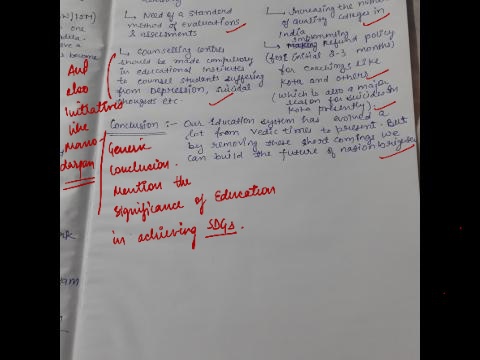 → Need of a standard
method of evaluations
& assessments
→ Increasing the
of quality colleges in
India
→ Counselling centres
should be made compulsory
in educational institutes
to counsel students suffering
from Depression, suicidal
thoughts etc.
Implementing
refund policy
(for initial 2-3 months)
for coachings like
Kota and others
(which is also a major
reason for suicides in
Kota presently).
Conclusion :- Our Education system has evolved a
lot from Vedic times to present. But
by removing these short comings we
can build the future of nation brighter
W)IOTM)
one
have a
become
Add
also
initiatives
like
Mano
darpan
Generic
Conclusion.
Mention the
significance of Education
in achieving SDGs.